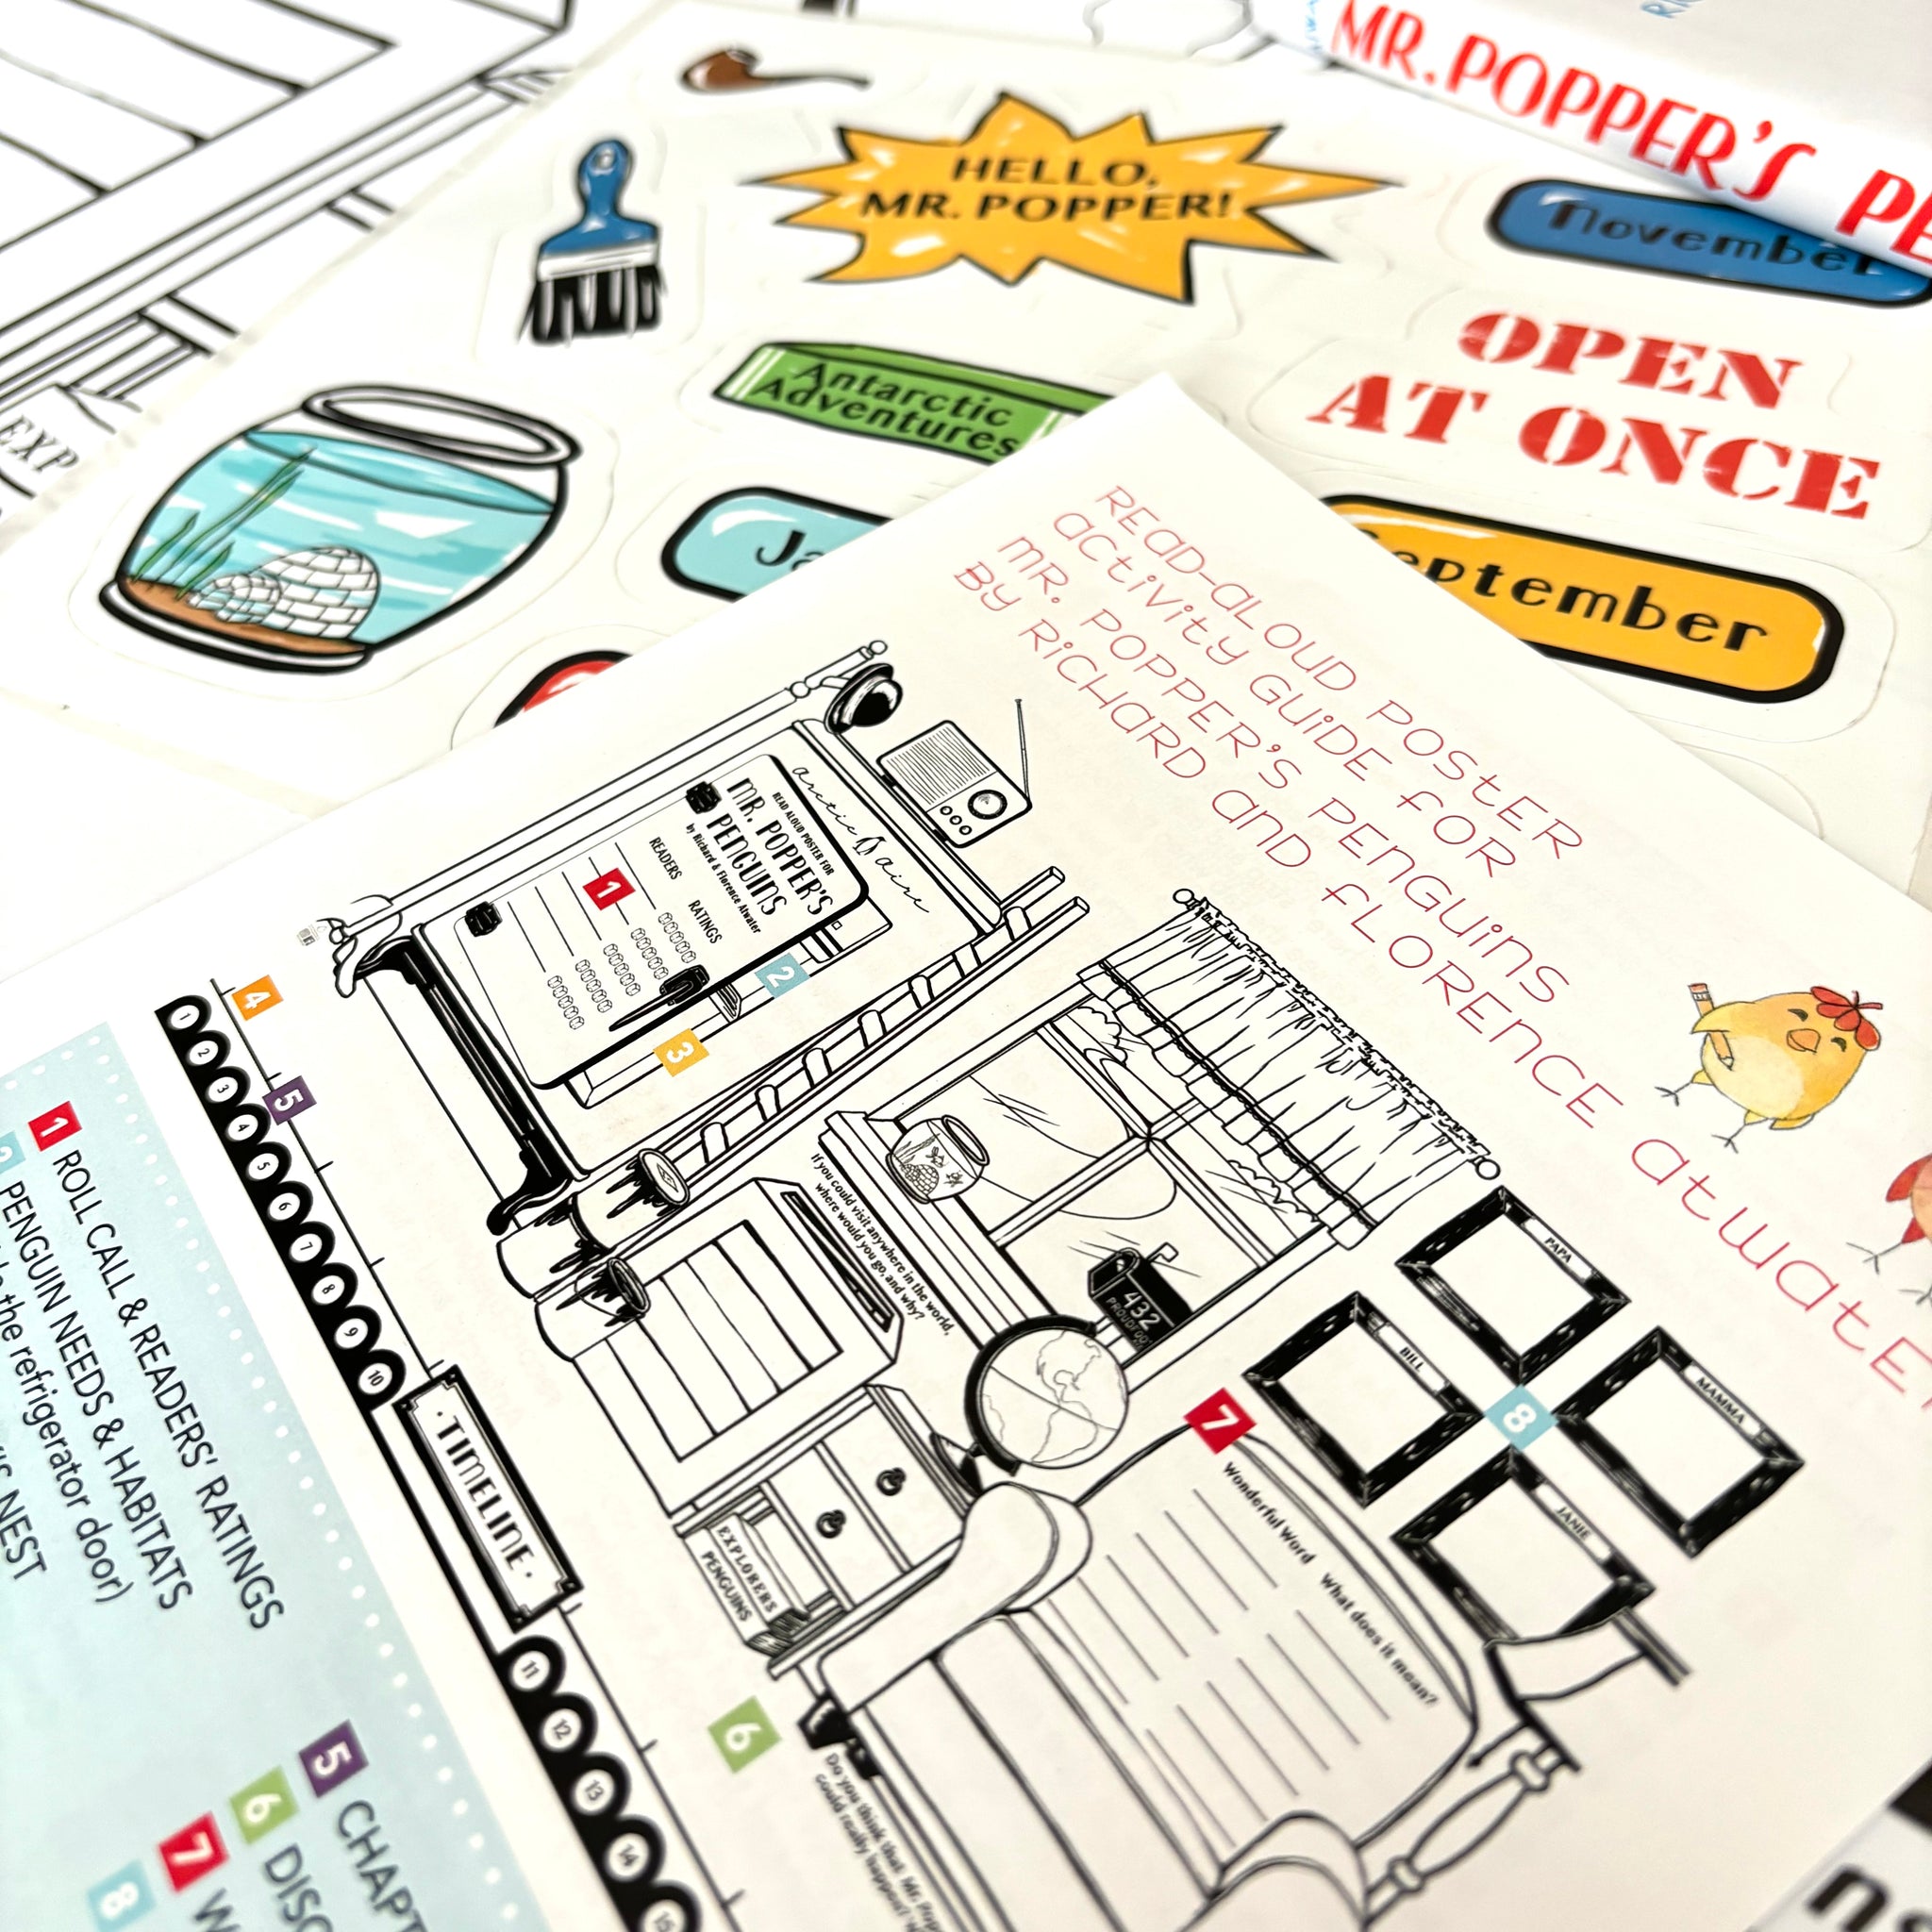 MR. POPPER'S
HELLO,
MR. POPPER!
November
OPEN
AT ONCE
Antarctic
Adventures
September
EXP
READ-ALOUD POSTER
ACTIVITY GUIDE FOR
MR. POPPER'S PENGUINS
BY RICHARD AND FLORENCE ATWATER
arctic aire
READ ALOUD POSTER FOR
MR. POPPER'S
PENGUINS
by Richard & Florence Atwater
READERS RATINGS
1
2
3
4
5
1
2
3
4
5
6
7
8
9
10
• TIMELINE •
11
12
13
14
15
If you could visit anywhere in the world,
where would you go, and why?
432
PROUDFOOT
PAPA
BILL
MAMMA
JANIE
8
7
Wonderful Word What does it mean?
EXPLORERS
PENGUINS
6
Do you think that Mr. Pop
could really happen?
1 ROLL CALL & READERS' RATINGS
2 PENGUIN NEEDS & HABITATS
the refrigerator door)
NEST
5 CHAPT
6 DISC
7 W
8